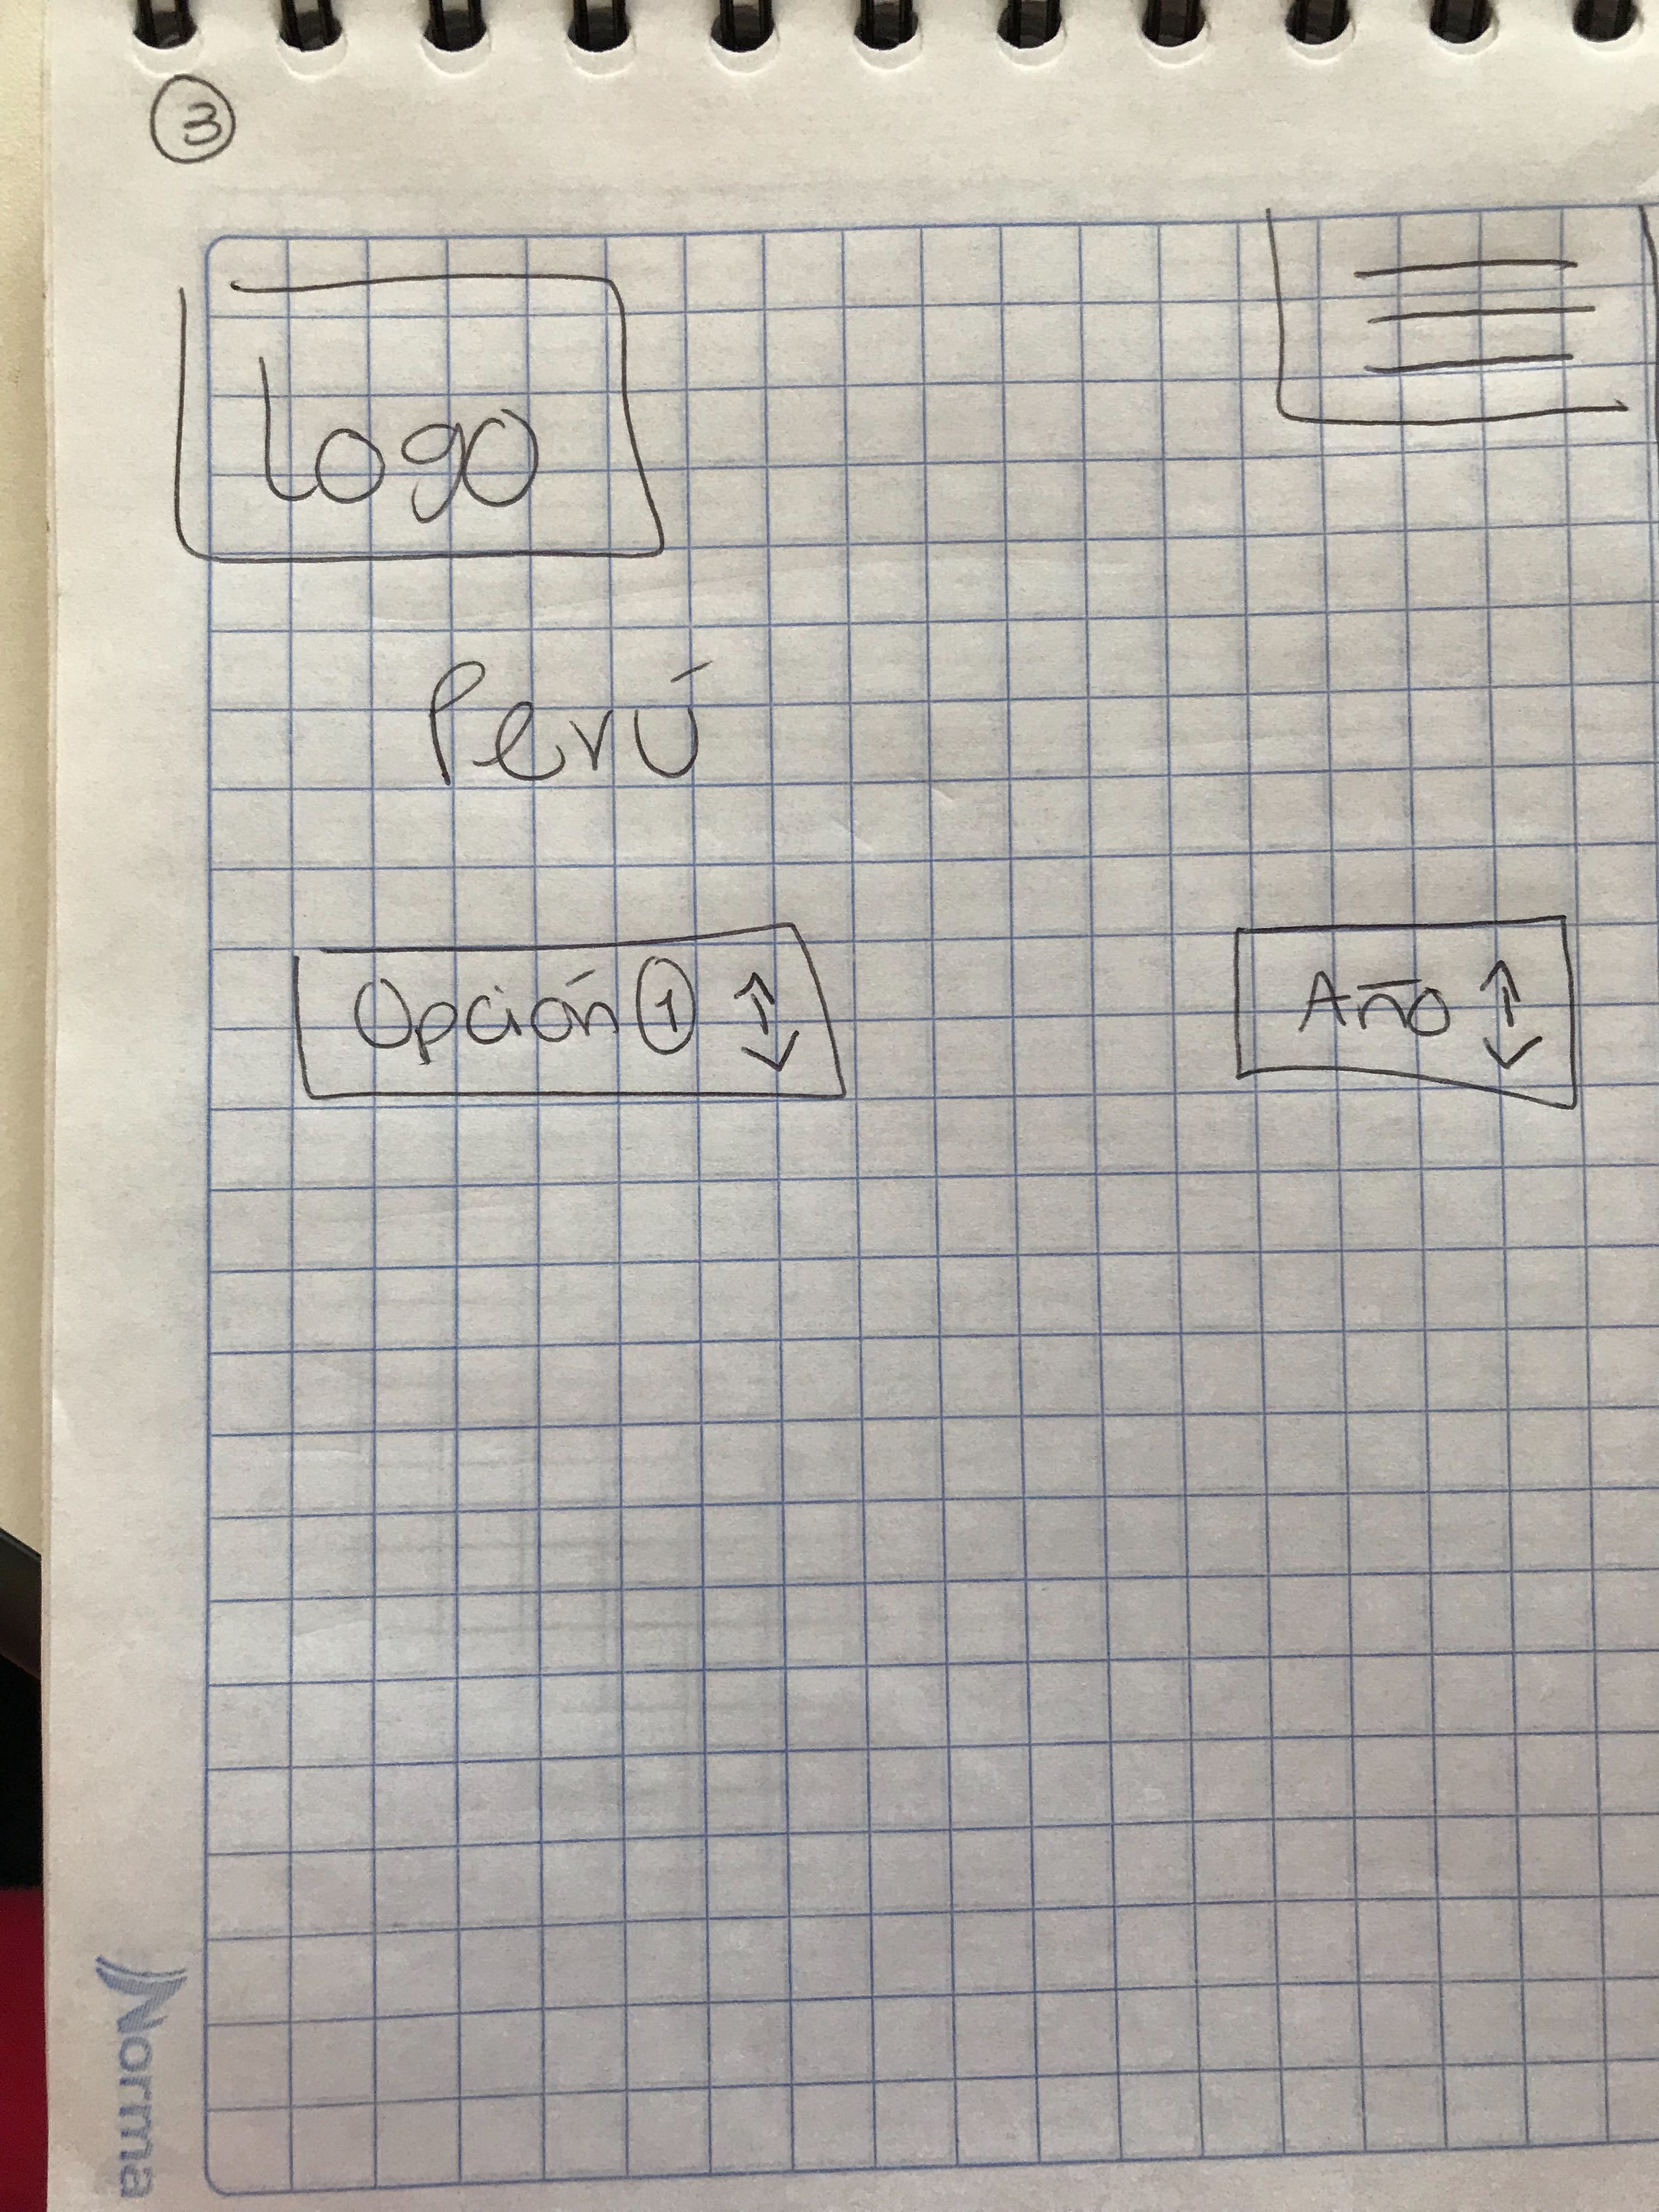 3
Logo
Perú
Opción 1 ↑↓
Año ↑↓
Norma